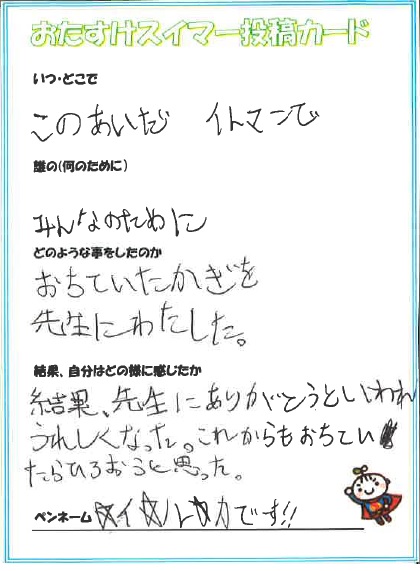 おたすけスイマー投稿カード
いつ・どこで
このあいだ イトマンで
誰の(何のために)
みんなのために
どのような事をしたのか
おちていたかぎを
先生にわたした。
結果、自分はどの様に感じたか
結果、先生にありがとうといわれ
うれしくなった。これからもおちてい
たらひろおうと思った。
ペンネーム ☆イ☆ル☆カです!!